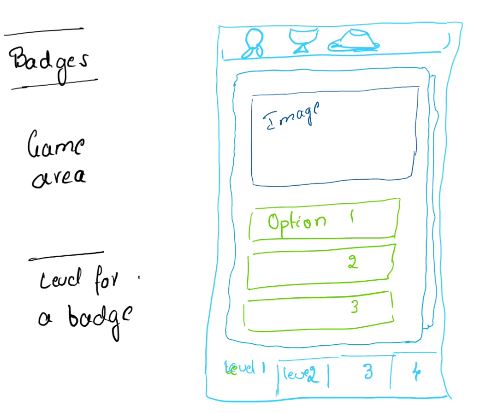 Badges
Game
area
Level for
a badge
Image
Option 1
2
3
Level 1
level 2
3
4